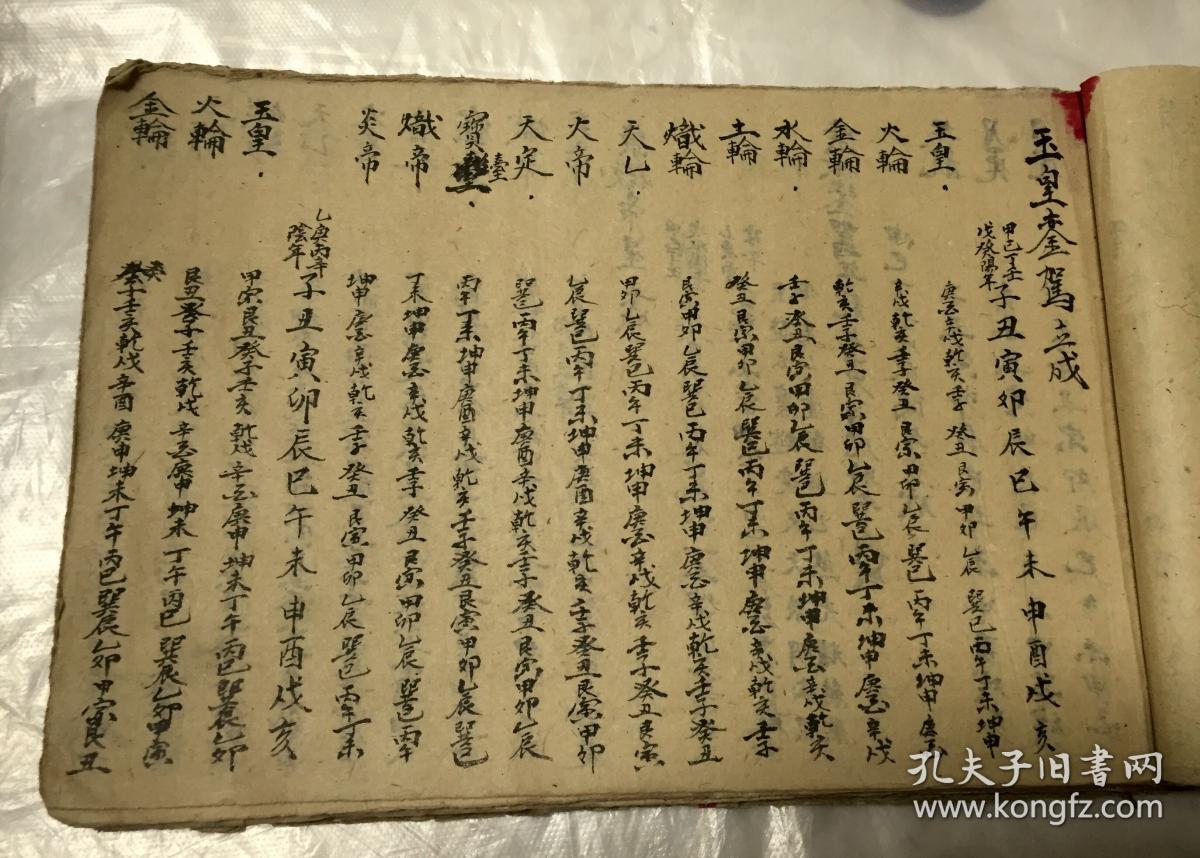 玉皇銮駕立成
甲己丁壬戊癸陽年 子丑寅卯辰巳午未申酉戌亥
玉皇 庚酉辛戌乾亥壬子癸丑艮寅甲卯乙辰巽巳丙午丁未坤申
火輪 辛戌乾亥壬子癸丑艮寅甲卯乙辰巽巳丙午丁未坤申庚酉
金輪 乾亥壬子癸丑艮寅甲卯乙辰巽巳丙午丁未坤申庚酉辛戌
水輪 壬子癸丑艮寅甲卯乙辰巽巳丙午丁未坤申庚酉辛戌乾亥
土輪 癸丑艮寅甲卯乙辰巽巳丙午丁未坤申庚酉辛戌乾亥壬子
熾輪 艮寅甲卯乙辰巽巳丙午丁未坤申庚酉辛戌乾亥壬子癸丑
天乙 甲卯乙辰巽巳丙午丁未坤申庚酉辛戌乾亥壬子癸丑艮寅
天帝 乙辰巽巳丙午丁未坤申庚酉辛戌乾亥壬子癸丑艮寅甲卯
天定 巽巳丙午丁未坤申庚酉辛戌乾亥壬子癸丑艮寅甲卯乙辰
寶臺 丙午丁未坤申庚酉辛戌乾亥壬子癸丑艮寅甲卯乙辰巽巳
熾帝 丁未坤申庚酉辛戌乾亥壬子癸丑艮寅甲卯乙辰巽巳丙午
炎帝 坤申庚酉辛戌乾亥壬子癸丑艮寅甲卯乙辰巽巳丙午丁未
乙庚丙辛陰年 子丑寅卯辰巳午未申酉戌亥
玉皇 甲寅艮丑癸子壬亥乾戌辛酉庚申坤未丁午丙巳巽辰乙卯
火輪 艮丑癸子壬亥乾戌辛酉庚申坤未丁午丙巳巽辰乙卯甲寅
金輪 癸子壬亥乾戌辛酉庚申坤未丁午丙巳巽辰乙卯甲寅艮丑
孔夫子旧书网
www.kongfz.com